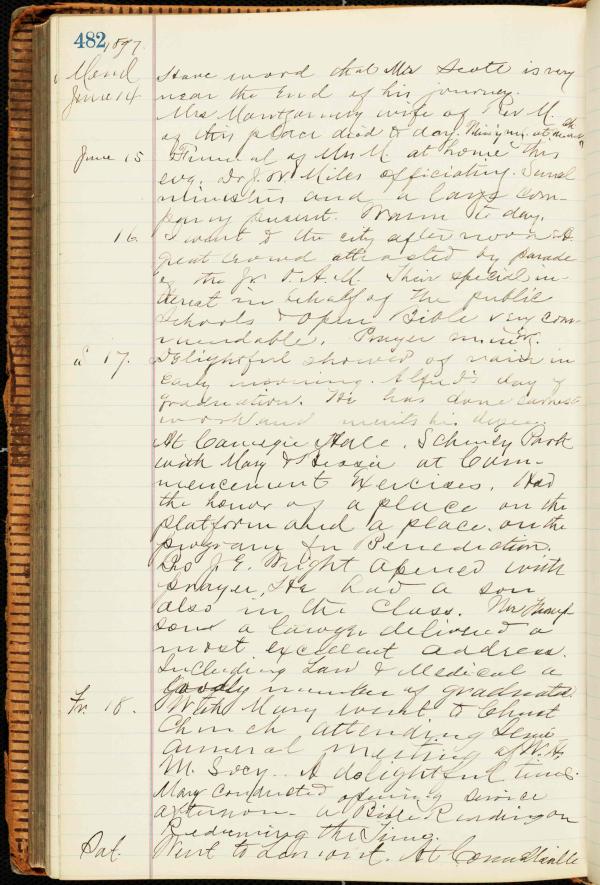 482 1897
Mond Have word that Mr Scott is very
June 14 near the End of his journey.
Mrs Montgomery wife of Rev M.
of this place died to day.
June 15 Funeral of Mrs M. at home this
evg. Dr J. W. Miles officiating. Several
ministers and a large com-
pany present. Warm to day.
16. I went to the city afternoon. A
great crowd attracted by parade
of the Jr. O. A. M. Their special in-
terest in behalf of the public
Schools & Open Bible very com-
mendable. Prayer
17. Delightful shower of rain in
early morning. Alfred's day of
graduation. He has done earnest
work and merits his degree.
At Carnegie Hall, Schenley Park
with Mary & Bessie at Com-
mencement Exercises. Had
the honor of a place on the
platform and a place on the
program for Benediction.
J. E. Wright opened with
prayer. He had a son
also in the Class. Mr
a lawyer delivered a
most excellent address.
Including Law & Medical a
goodly number of graduates.
Fr. 18. With Mary went to Christ
Church attending Semi
annual meeting of W. H.
M. Socy. A delightful time.
Mary conducted opening service
afternoon - a Bible Reading on
Redeeming the Time.
Sat. Went to At Connellsville